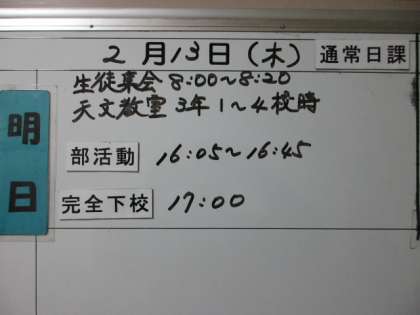 2月13日(木) 通常日課
生徒集会 8:00~8:20
天文教室 3年 1~4校時
明日
部活動 16:05~16:45
完全下校 17:00